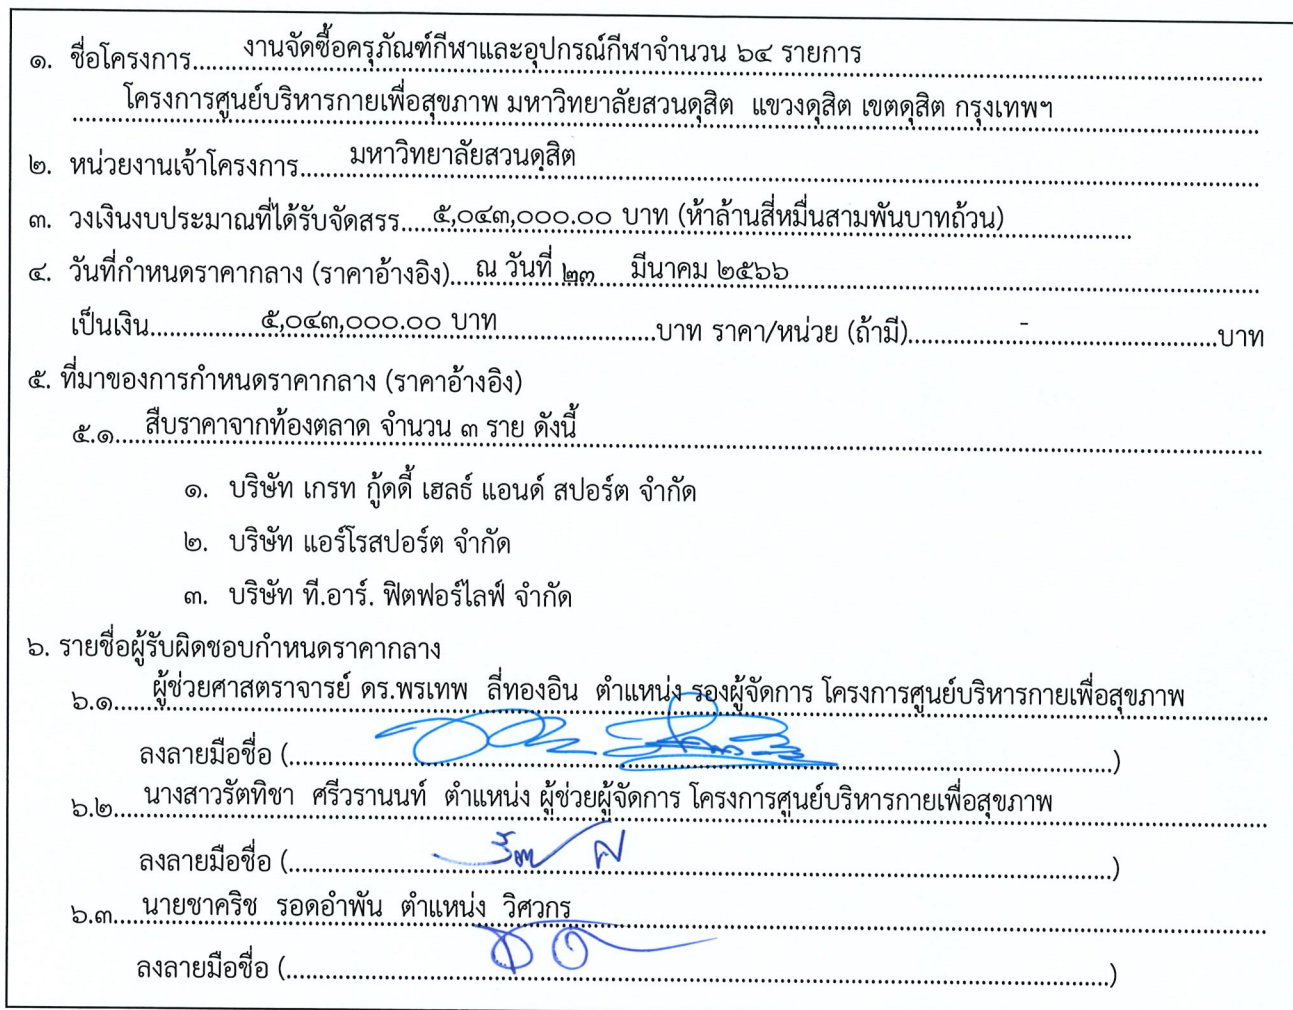 ๑. ชื่อโครงการ......งานจัดซื้อครุภัณฑ์กีฬาและอุปกรณ์กีฬาจำนวน ๖๔ รายการ
โครงการศูนย์บริหารกายเพื่อสุขภาพ มหาวิทยาลัยสวนดุสิต แขวงดุสิต เขตดุสิต กรุงเทพฯ
๒. หน่วยงานเจ้าโครงการ......มหาวิทยาลัยสวนดุสิต
๓. วงเงินงบประมาณที่ได้รับจัดสรร.....๕,๐๔๓,๐๐๐.๐๐ บาท (ห้าล้านสี่หมื่นสามพันบาทถ้วน)
๔. วันที่กำหนดราคากลาง (ราคาอ้างอิง)....ณ วันที่ ๒๓ มีนาคม ๒๕๖๖
เป็นเงิน...............๕,๐๔๓,๐๐๐.๐๐ บาท....................บาท ราคา/หน่วย (ถ้ามี)...............-...............บาท
๕. ที่มาของการกำหนดราคากลาง (ราคาอ้างอิง)
๕.๑....สืบราคาจากท้องตลาด จำนวน ๓ ราย ดังนี้
๑. บริษัท เกรท กู้ดดี้ เฮลธ์ แอนด์ สปอร์ต จำกัด
๒. บริษัท แอร์โรสปอร์ต จำกัด
๓. บริษัท ที.อาร์. ฟิตฟอร์ไลฟ์ จำกัด
๖. รายชื่อผู้รับผิดชอบกำหนดราคากลาง
๖.๑.....ผู้ช่วยศาสตราจารย์ ดร.พรเทพ ลี่ทองอิน ตำแหน่ง รองผู้จัดการ โครงการศูนย์บริหารกายเพื่อสุขภาพ
ลงลายมือชื่อ (..............................)
๖.๒....นางสาวรัตทิชา ศรีวรานนท์ ตำแหน่ง ผู้ช่วยผู้จัดการ โครงการศูนย์บริหารกายเพื่อสุขภาพ
ลงลายมือชื่อ (..............................)
๖.๓....นายชาคริช รอดอำพัน ตำแหน่ง วิศวกร
ลงลายมือชื่อ (..............................)